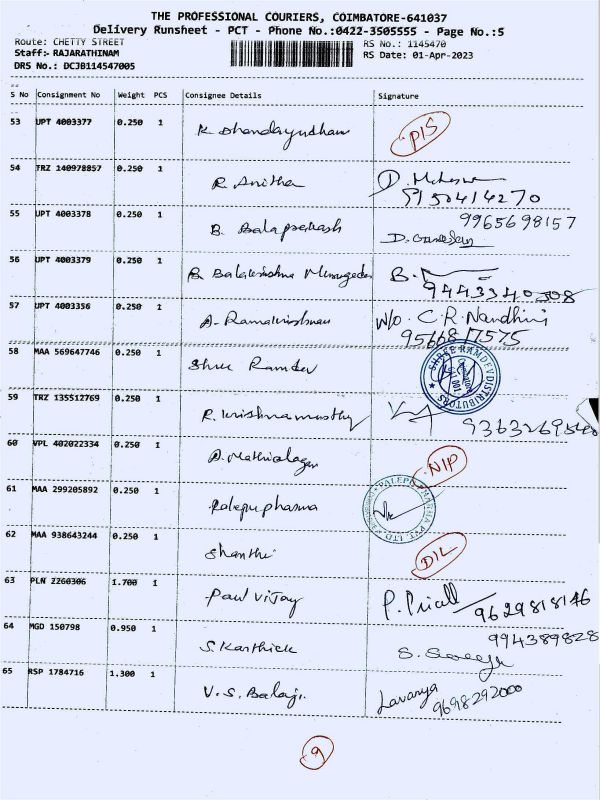 THE PROFESSIONAL COURIERS, COIMBATORE-641037
Delivery Runsheet - PCT - Phone No.:0422-3505555 - Page No.:5
Route: CHETTY STREET
RS No.: 1145470
Staff:- RAJARATHINAM
RS Date: 01-Apr-2023
DRS No.: DCJB114547005
S No Consignment No Weight PCS Consignee Details Signature
53 UPT 4003377 0.250 1 K. Dhandayudham PIS
54 TRZ 140978857 0.250 1 R. Anitha D.
9150414270
55 UPT 4003378 0.250 1 B. Balaprakash 9965698157
D. Ganesan
56 UPT 4003379 0.250 1 B. Balakrishna Murugedan B.
9443340508
57 UPT 4003356 0.250 1 A. Ramakrishnan W/o. C.R. Nandhini
9566817575
58 MAA 569647746 0.250 1 Shree Ramdev SHREE RAMDEV DISTRIBUTORS
59 TRZ 135512769 0.250 1 R. Krishnamurthy
60 VPL 402022334 0.250 1 A. Mathialagan NIP
61 MAA 299205892 0.250 1 Palepu pharma PALEPU PHARMA PVT. LTD
62 MAA 938643244 0.250 1 Shanthi DIL
63 PLN 2260306 1.700 1 Paul Vijay P.
9629818146
64 MGD 150798 0.950 1 S. Karthick 994389828
S.
65 RSP 1784716 1.300 1 V.S. Balaji. Lavanya
9698292000
9